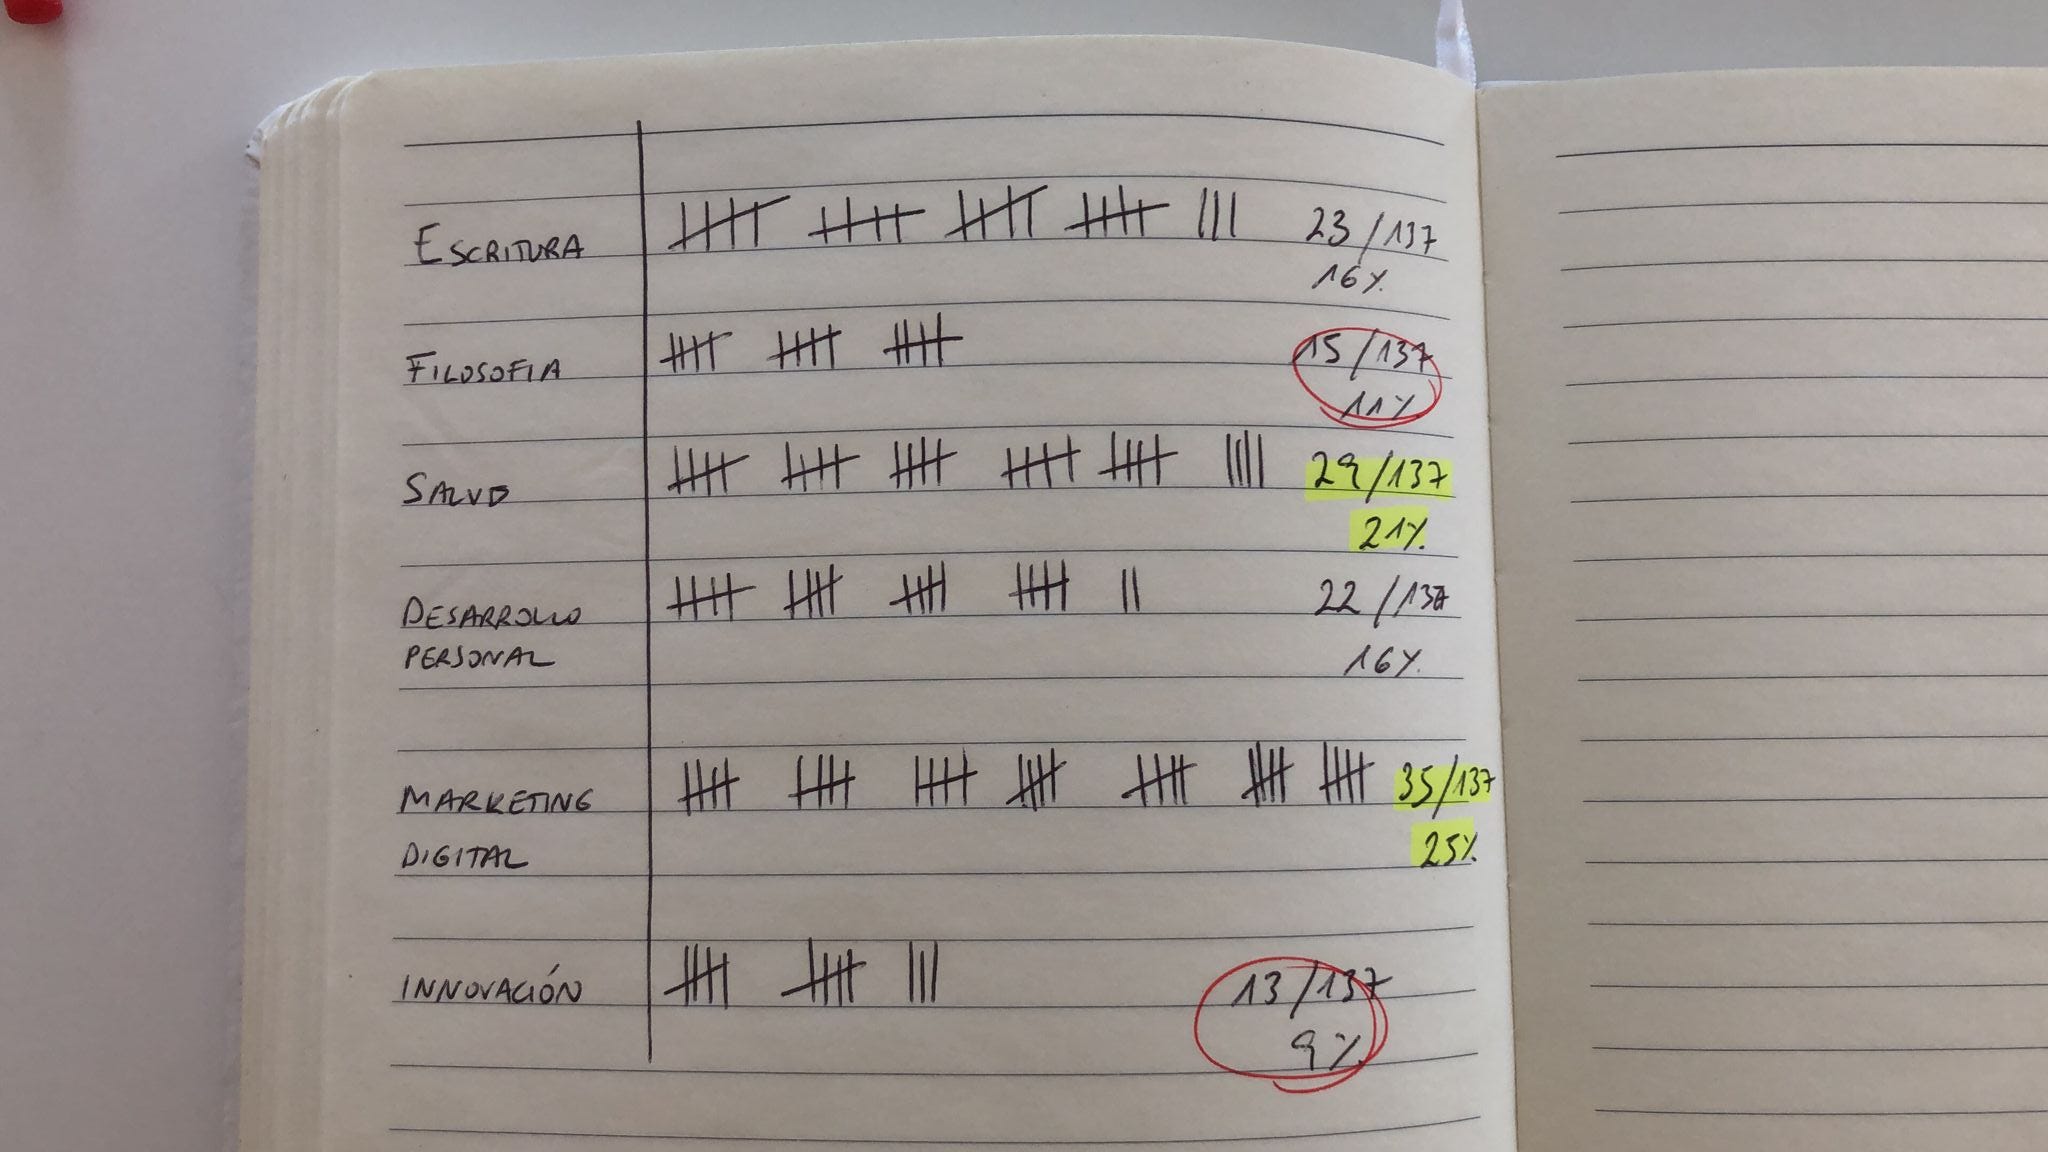 ESCRITURA 23/137
16%
FILOSOFIA 15/137
11%
SALUD 29/137
21%
DESARROLLO 22/137
PERSONAL 16%
MARKETING 35/137
DIGITAL 25%
INNOVACIÓN 13/137
9%